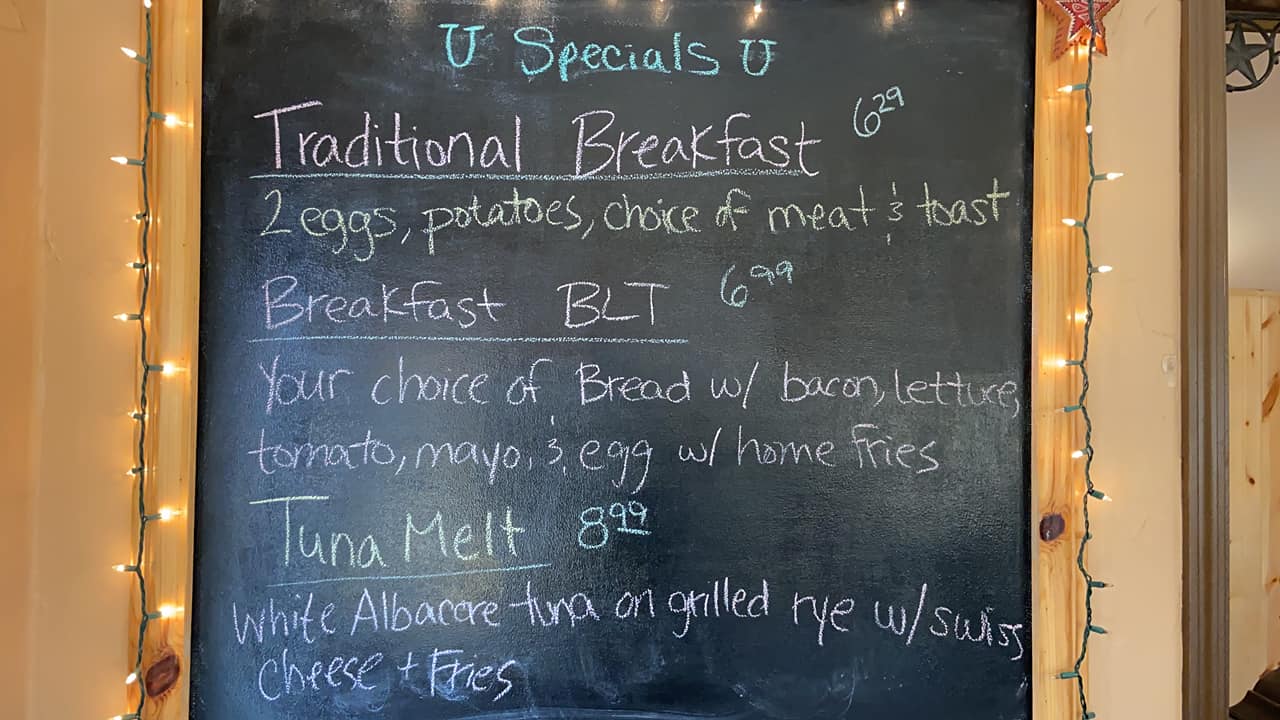 Specials
Traditional Breakfast 6 29
2 eggs, potatoes, choice of meat & toast
Breakfast BLT 6 99
Your choice of Bread w/ bacon, letture,
tomato, mayo, & egg w/ home fries
Tuna Melt 8 99
White Albacore tuna on grilled rye w/ swiss
cheese + Fries